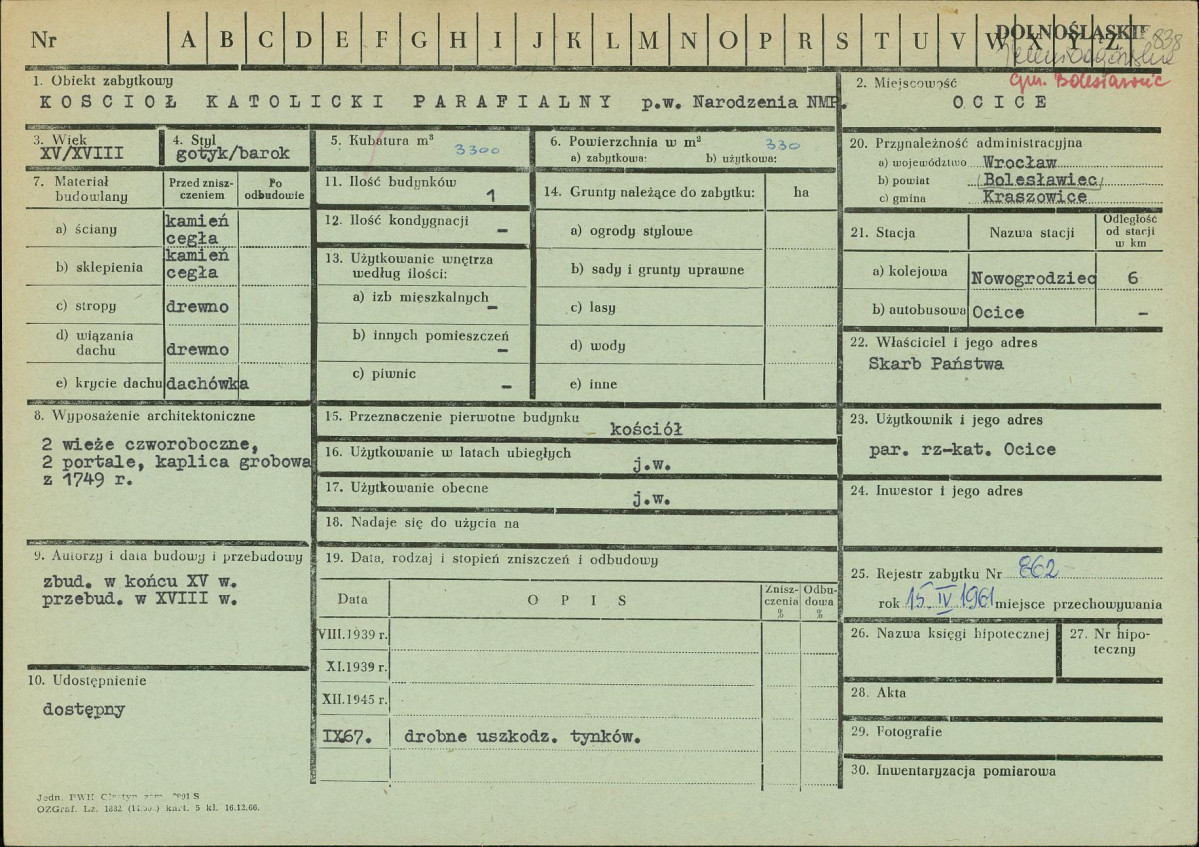 Nr A B C D E F G H I J K L M N O P R S T U V W X Y Z
DOLNOŚLĄSKIE
gm. Bolesławiec
1. Obiekt zabytkowy
KOSCIOŁ KATOLICKI PARAFIALNY p.w. Narodzenia NMP.
2. Miejscowość
OCICE
3. Wiek
XV/XVIII
4. Styl
gotyk/barok
5. Kubatura m³
3300
6. Powierzchnia w m²
330
a) zabytkowa: b) użytkowa:
7. Materiał budowlany
Przed zniszczeniem
Po odbudowie
a) ściany
kamień
cegła
b) sklepienia
kamień
cegła
c) stropy
drewno
d) wiązania dachu
drewno
e) krycie dachu
dachówka
8. Wyposażenie architektoniczne
2 wieże czworoboczne,
2 portale, kaplica grobowa
z 1749 r.
9. Autorzy i data budowy i przebudowy
zbud. w końcu XV w.
przebud. w XVIII w.
10. Udostępnienie
dostępny
11. Ilość budynków
1
12. Ilość kondygnacji
–
13. Użytkowanie wnętrza
według ilości:
a) izb mieszkalnych
–
b) innych pomieszczeń
–
c) piwnic
–
14. Grunty należące do zabytku: ha
a) ogrody stylowe
b) sady i grunty uprawne
c) lasy
d) wody
e) inne
15. Przeznaczenie pierwotne budynku
kościół
16. Użytkowanie w latach ubiegłych
j.w.
17. Użytkowanie obecne
j.w.
18. Nadaje się do użycia na
19. Data, rodzaj i stopień zniszczeń i odbudowy
Data
OPIS
Zniszczenia %
Odbudowa %
VIII.1939 r.
XI.1939 r.
XII.1945 r.
IX67. drobne uszkodz. tynków.
20. Przynależność administracyjna
a) województwo Wrocław
b) powiat Bolesławiec
c) gmina Kraszowice
21. Stacja
Nazwa stacji
Odległość
od stacji
w km
a) kolejowa Nowogrodziec 6
b) autobusowa Ocice –
22. Właściciel i jego adres
Skarb Państwa
23. Użytkownik i jego adres
par. rz-kat. Ocice
24. Inwestor i jego adres
25. Rejestr zabytku Nr 862
rok 15 IV 1961 miejsce przechowywania
26. Nazwa księgi hipotecznej
27. Nr hipoteczny
28. Akta
29. Fotografie
30. Inwentaryzacja pomiarowa
OZGraf. Lz. 1832 kart. 5 kl. 16.12.66.